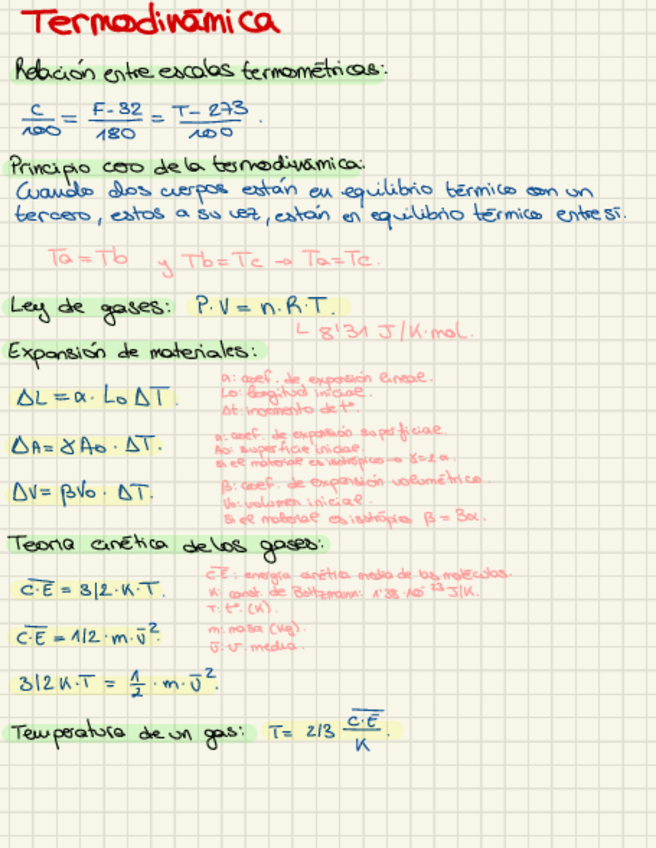 Termodinámica
Relación entre escalas termométricas:
C/100 = F-32/180 = T-273/100.
Principio cero de la termodinámica:
Cuando dos cuerpos están en equilibrio térmico con un
tercero, estos a su vez, están en equilibrio térmico entre sí.
Ta = Tb y Tb = Tc → Ta = Tc.
Ley de gases: P·V = n·R·T.
8'31 J/K·mol.
Expansión de materiales:
ΔL = α·Lo ΔT.
α: coef. de expansión lineal.
Lo: longitud inicial.
Δt: incremento de tª.
ΔA = γAo·ΔT.
coef. de expansión superficial.
Ao: superficie inicial.
si el material es isotrópico → γ=2α.
ΔV = βVo·ΔT.
β: coef. de expansión volumétrico.
Vo: volumen inicial.
Si el material es isotrópico β = 3α.
Teoría cinética de los gases:
C·E = 3/2·K·T.
C·E: energía cinética media de las moléculas.
K: const. de Boltzmann: 1'38·10⁻²³ J/K.
T: tª. (K).
C·E = 1/2·m·v̄².
m: masa (Kg).
v̄: v. media.
3/2 K·T = 1/2·m·v̄².
Temperatura de un gas: T = 2/3 C·E/K.